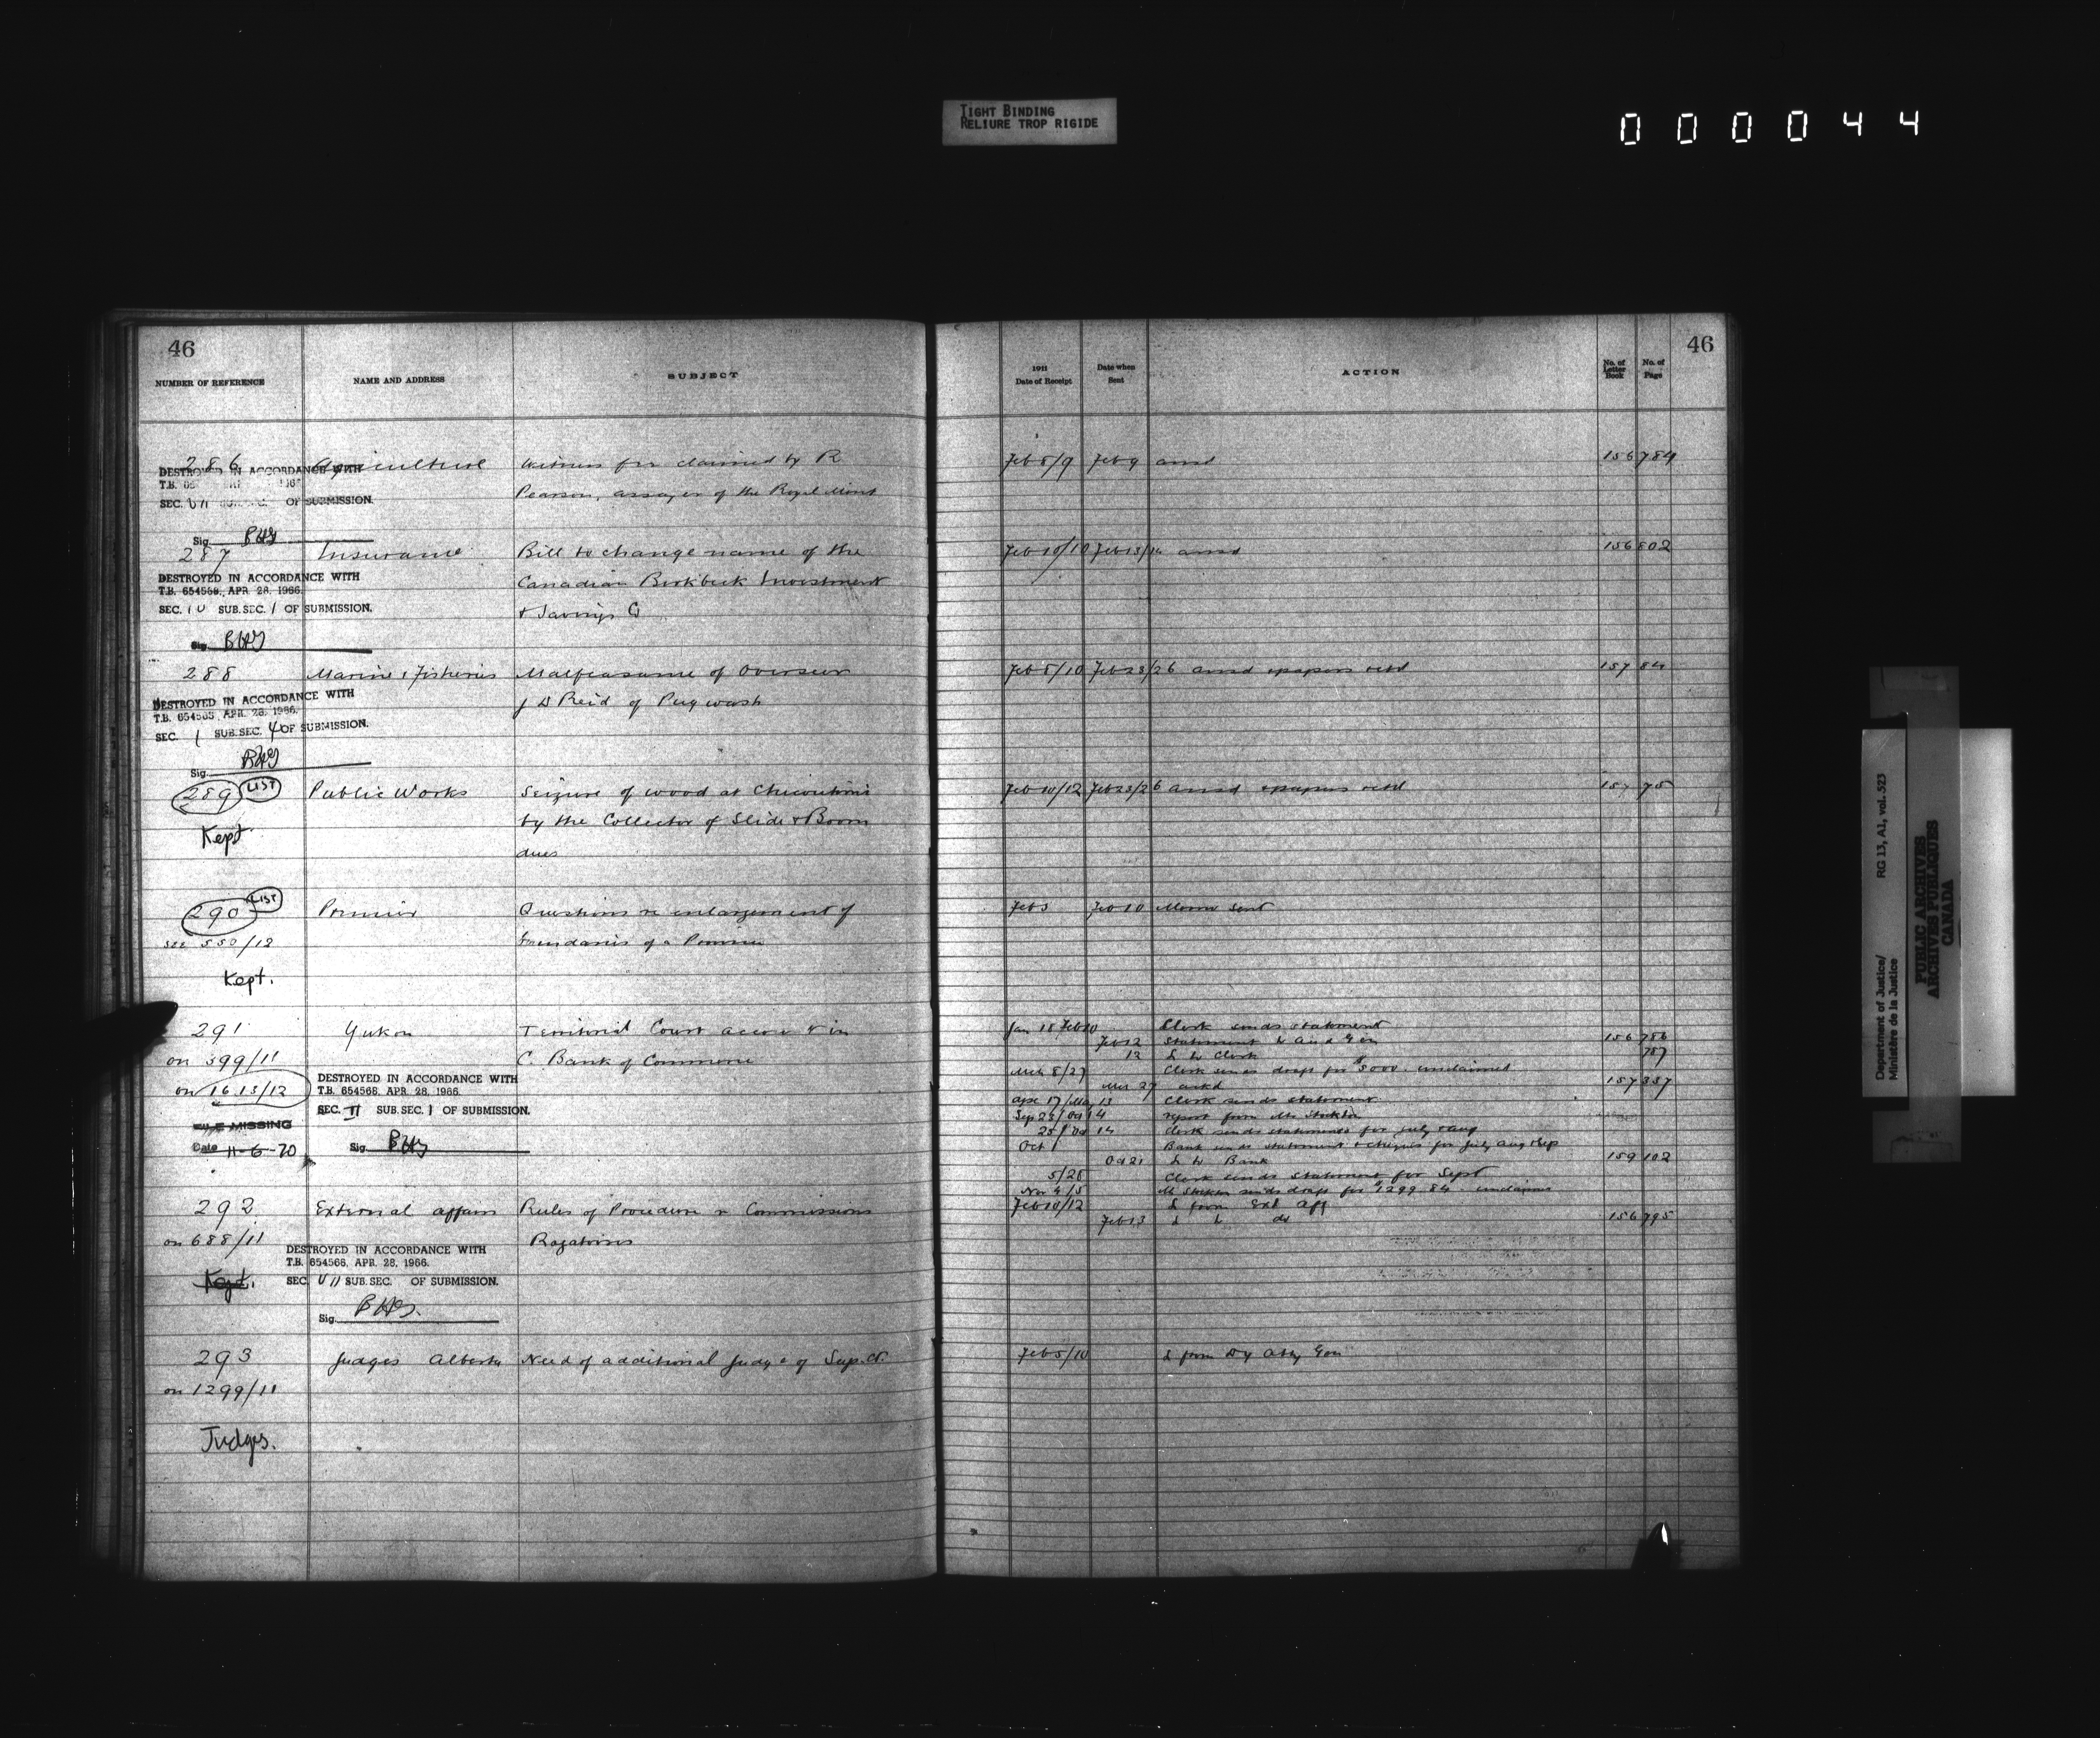 TIGHT BINDING
RELIURE TROP RIGIDE
000044
46
NUMBER OF REFERENCE NAME AND ADDRESS SUBJECT
286 Agriculture Witness fee claimed by R
Pearson, assayer of the Royal Mint
DESTROYED IN ACCORDANCE WITH
T.B.
SEC. VII OF SUBMISSION.
Sig. BHG
287 Insurance Bill to change name of the
Canadian Birkbeck Investment
& Savings Co
DESTROYED IN ACCORDANCE WITH
T.B. 654568, APR. 28, 1966.
SEC. IV SUB.SEC. 1 OF SUBMISSION.
Sig. BHG
288 Marine & Fisheries Malfeasance of Overseer
J D Reid of Pugwash
DESTROYED IN ACCORDANCE WITH
T.B. 654568, APR. 28, 1966.
SEC. 1 SUB.SEC. 4 OF SUBMISSION.
Sig. BHG
289 LIST Public Works Seizure of wood at Chicoutimi
by the Collector of Slide & Boom
dues
Kept
290 LIST Premier Questions re enlargement of
boundaries of a Province
see 550/12
Kept.
291 Yukon Territorial Court account in
C. Bank of Commerce
on 399/11
on 1613/12
DESTROYED IN ACCORDANCE WITH
T.B. 654568, APR. 28, 1966.
SEC. II SUB.SEC. 1 OF SUBMISSION.
FILE MISSING
Date 11-6-70
Sig. BHG
292 External affairs Rules of Procedure re Commissions
Rogatoires
on 688/11
DESTROYED IN ACCORDANCE WITH
T.B. 654568, APR. 28, 1966.
Kept. SEC. VII SUB.SEC. OF SUBMISSION.
Sig. BHG.
293 Judges Alberta Need of additional Judge of Sup. Ct.
on 1299/11
Judges.
46
1911
Date of Receipt Date when Sent ACTION No. of Letter Book No. of Page
Feb 8/9 Feb 9 ansd 156 784
Feb 10/10 Feb 13/14 ansd 156 802
Feb 8/10 Feb 23/26 ansd & papers retd 157 84
Feb 10/12 Feb 23/26 ansd & papers retd 157 75
Feb 3 Feb 10 Memo sent
Jan 18 Feb 10 Clerk sends statement
Feb 12 Statement to Aud Gen 156 786
12 L to Clerk 787
Mch 8/27 Clerk sends draft for $3000. unclaimed
Mar 27 ackd 157 337
Apl 17/May 13 Clerk sends statement
Sep 23/Oct 14 report from Mr Stockton
25/Oct 14 Clerk sends statements for July & aug
Oct 1 Bank sends statement & cheques for July aug & Sep
Oct 21 L to Bank 159 102
5/28 Clerk sends statement for Sept
Nov 4/5 sends draft for $1299.84 unclaimed
Feb 10/12 L from Ext Aff
Feb 13 L to do 156 795
Feb 5/10 L from Dy Atty Gen
Department of Justice/
Ministère de la Justice
RG 13, A1, vol. 523
PUBLIC ARCHIVES
ARCHIVES PUBLIQUES
CANADA